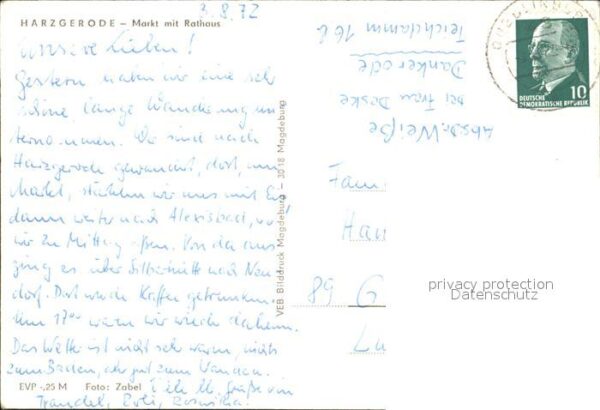 HARZGERODE – Markt mit Rathaus
3.8.72
Unsere Lieben!
Gestern haben wir eine sehr
schöne, lange Wanderung un-
ternommen. Wir sind nach
Harzgerode gewandert, dort, am
Markt, stärkten wir uns mit Eis
dann weiter nach Alexisbad, wo
wir zu Mittag aßen. Von da aus
ging es über Silberhütte nach Neu
dorf. Dort wurde Kaffee getrunken.
Um 17⁰⁰ waren wir wieder daheim.
Das Wetter ist nicht sehr warm, nichts
zum Baden, aber gut zum Wandern.
EVP -,25 M Foto: Zabel
Grüße von
Traudel,
VEB Bilddruck Magdeburg – 3018 Magdeburg
Abs. Weiße
bei Frau Deske
Dankerode
Teichdamm 16
QUEDLINBURG
10
DEUTSCHE
DEMOKRATISCHE REPUBLIK
Fam
Han
89 G
privacy protection
Datenschutz